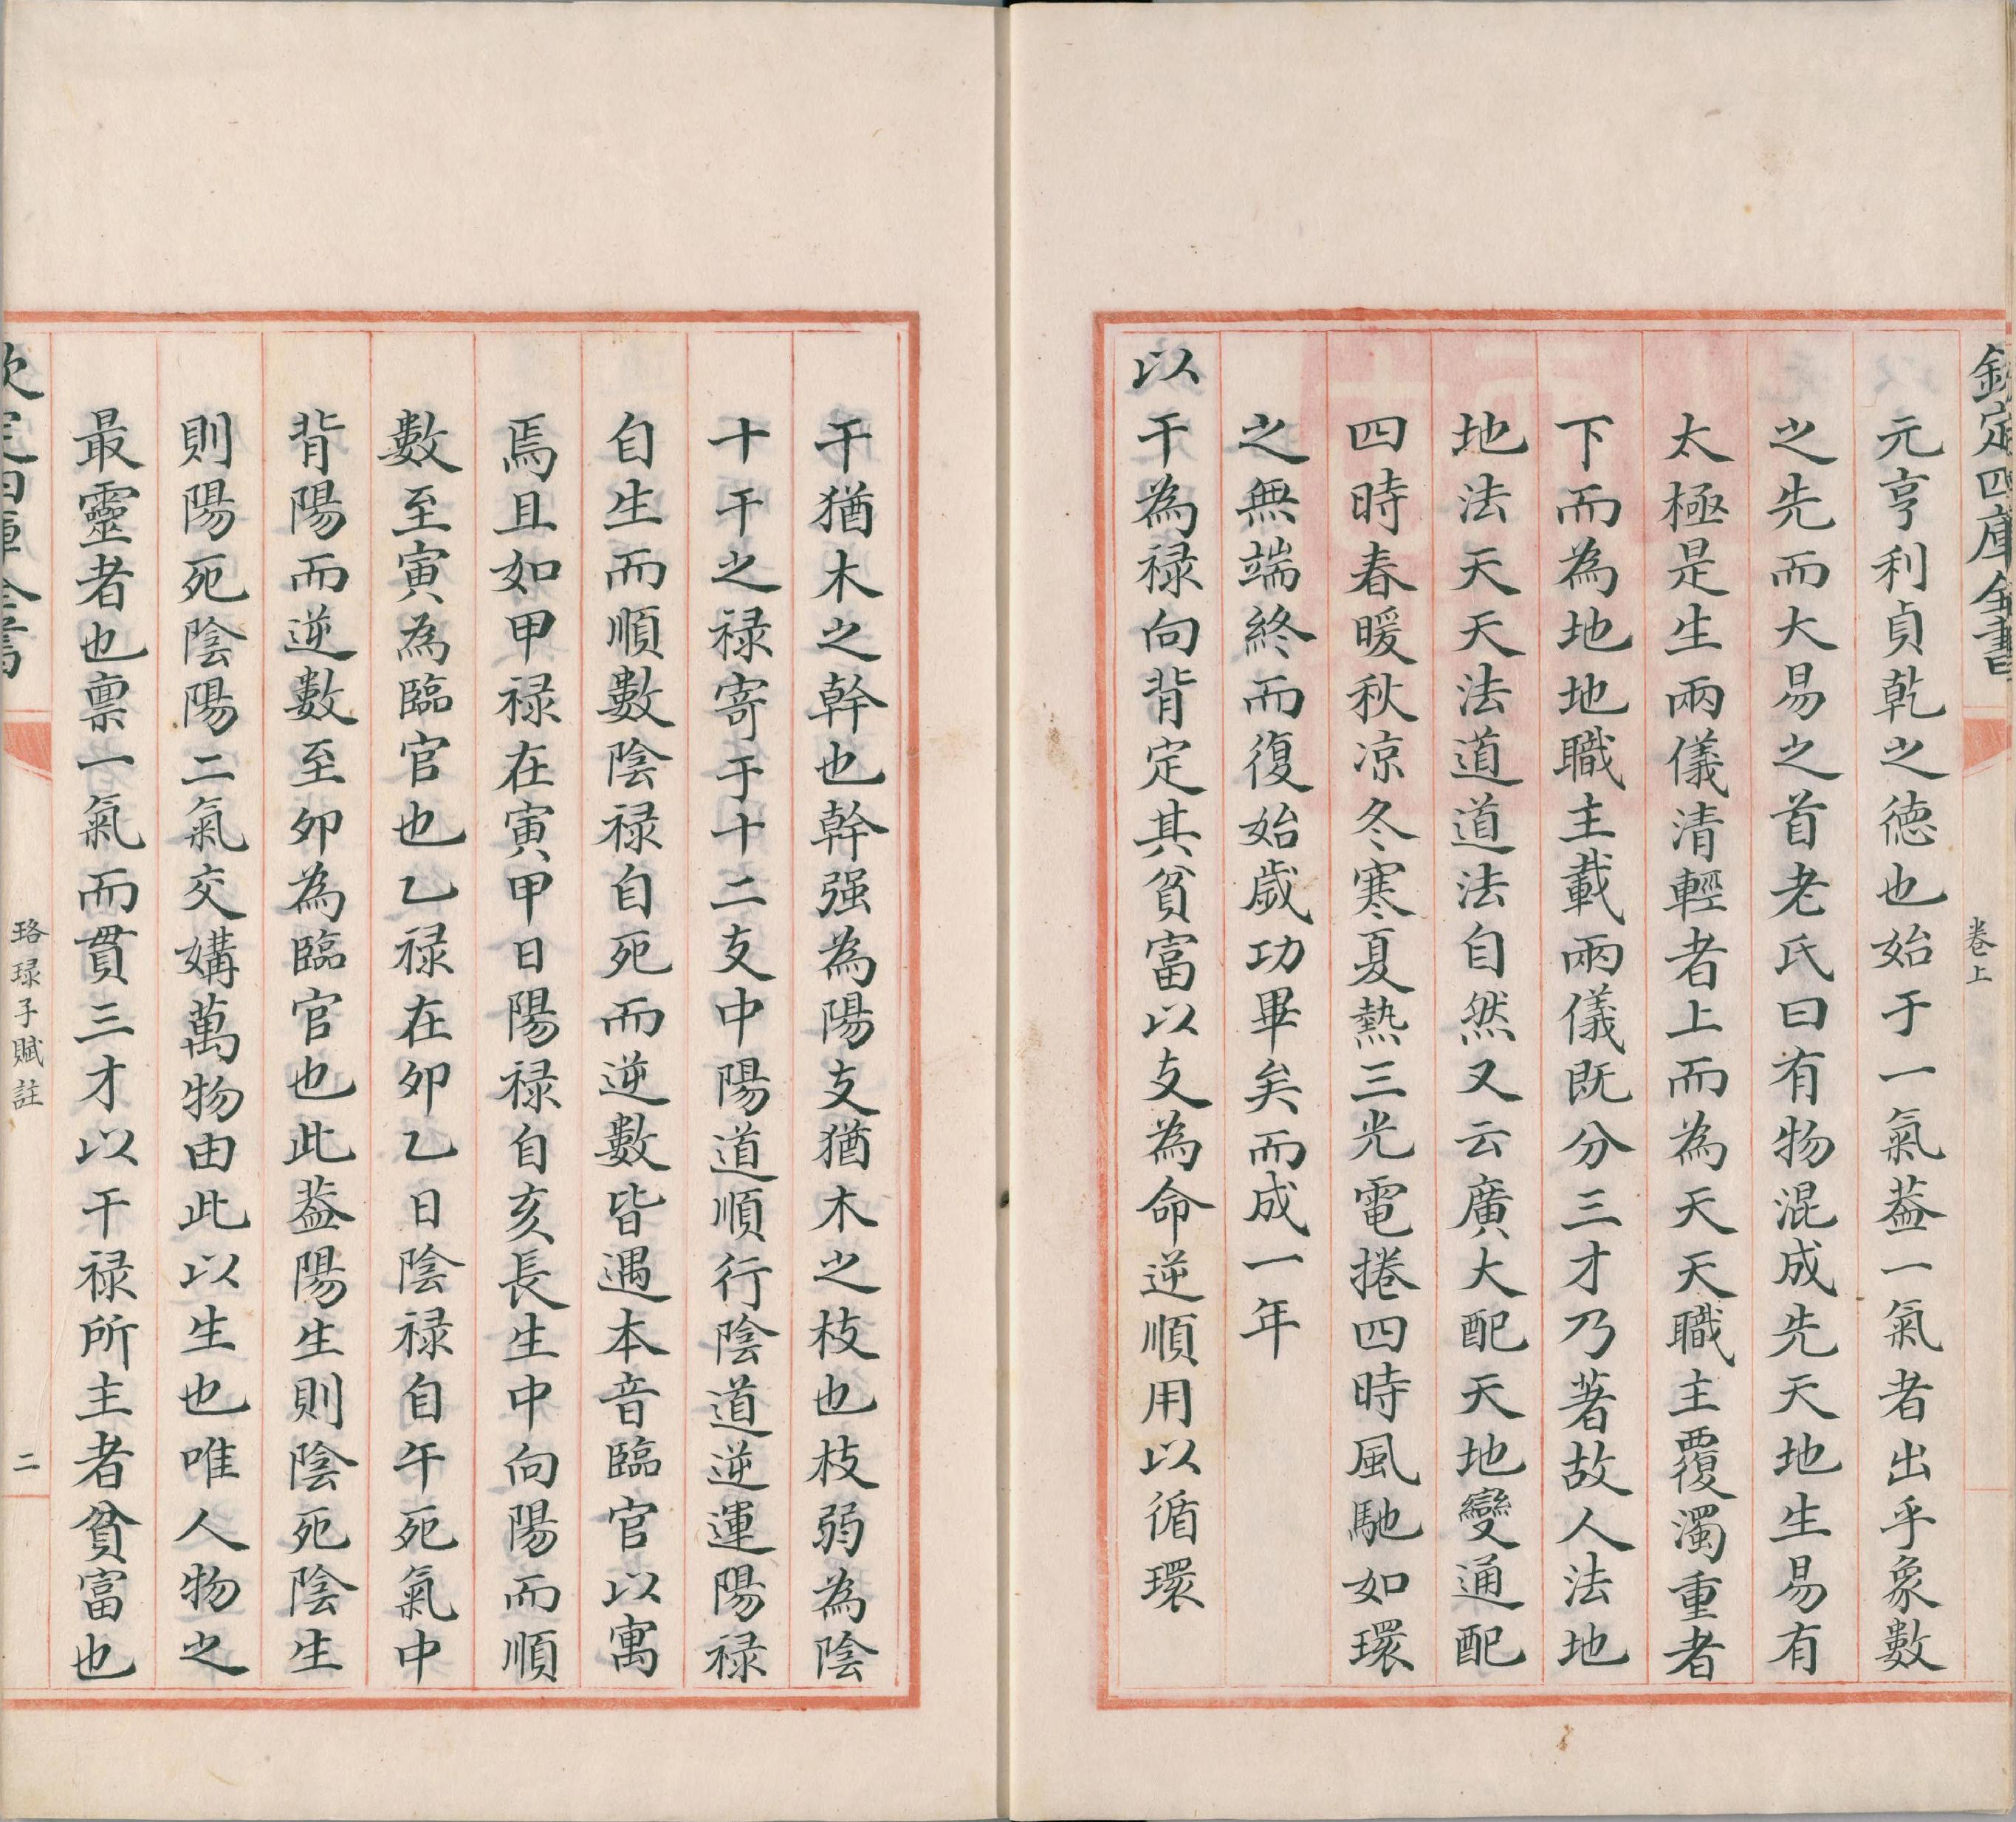 欽定四庫全書
卷上
元亨利貞乾之德也始于一氣葢一氣者出乎象數
之先而大易之首老氏曰有物混成先天地生易有
太極是生兩儀清輕者上而為天天職主覆濁重者
下而為地地職主載兩儀既分三才乃著故人法地
地法天天法道道法自然又云廣大配天地變通配
四時春暖秋凉冬寒夏熱三光電捲四時風馳如環
之無端終而復始歲功畢矣而成一年
以干為禄向背定其貧富以支為命逆順用以循環
干猶木之幹也幹强為陽支猶木之枝也枝弱為陰
十干之禄寄于十二支中陽道順行陰道逆運陽禄
自生而順數陰禄自死而逆數皆遇本音臨官以寓
焉且如甲禄在寅甲日陽禄自亥長生中向陽而順
數至寅為臨官也乙禄在夘乙日陰禄自午死氣中
背陽而逆數至夘為臨官也此葢陽生則陰死陰生
則陽死陰陽二氣交媾萬物由此以生也唯人物之
最靈者也禀一氣而貫三才以干禄所主者貧富也
欽定四庫全書
珞琭子賦註
二